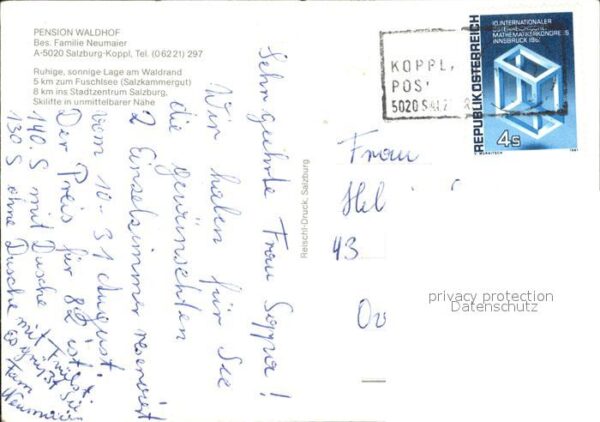 PENSION WALDHOF
Bes. Familie Neumaier
A-5020 Salzburg-Koppl, Tel. (0 62 21) 297
Ruhige, sonnige Lage am Waldrand
5 km zum Fuschlsee (Salzkammergut)
8 km ins Stadtzentrum Salzburg,
Skilifte in unmittelbarer Nähe
Sehr geehrte Frau !
Wir haben für Sie
die gewünschten
2 Einzelzimmer reserviert
vom 10-31 August.
Der Preis für 8Z ist:
140.S mit Dusche
130 S ohne Dusche mit Frühst.
Es grüßt Sie
Fam
Neumaier
Reischl-Druck, Salzburg
KOPPL,
POS
5020 S
10. INTERNATIONALER
MATHEMATIKERKONGRESS
INNSBRUCK 1981
REPUBLIK ÖSTERREICH
4s
1981
Frau
Hel
43
Ov
privacy protection
Datenschutz